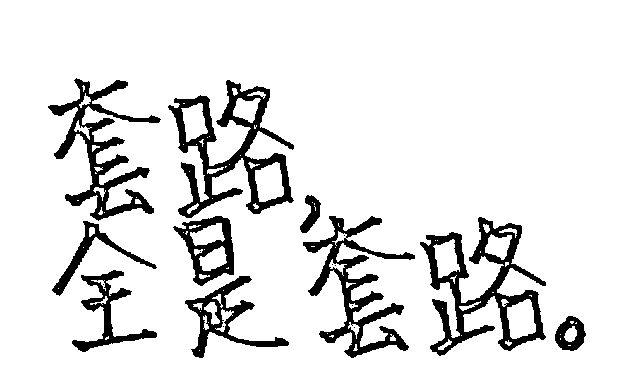 套路,
全是套路。